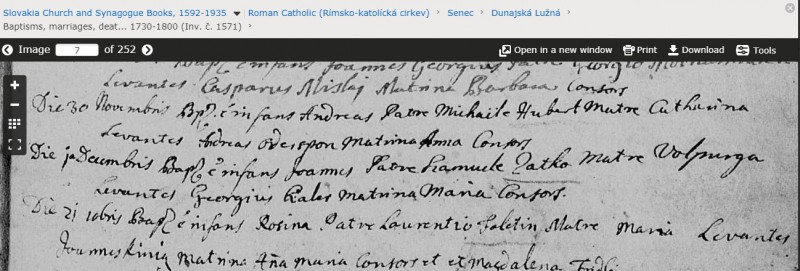 Slovakia Church and Synagogue Books, 1592-1935 Roman Catholic (Rímsko-katolícká cirkev) Senec Dunajská Lužná
Baptisms, marriages, deat... 1730-1800 (Inv. č. 1571)
Image 7 of 252 Open in a new window Print Download Tools
infans Joannes Georgius Patre Georgio
Levantes Casparus Mislaj Matrina Barbara Consors
Die 30 Novembris Bap: é infans Andreas Patre Michaele Hubert Matre Catharina
Levantes Andreas Matrina Anna Consors
Die Decembris Bap: é infans Joannes Patre Samuele Zatko Matre Volpurga
Levantes Georgius Rales Matrina Maria Consors.
Die 21 Xbris Bap: é infans Rosina Patre Laurentio Matre Maria Levantes
Joannes Matrina Aña Maria Consors et Magdalena